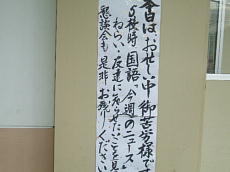 本日はお忙い中御苦労様です
5校時 国語「今週のニュース」
ねらい・友達に知らせたいことを見
懇談会も是非お残りください